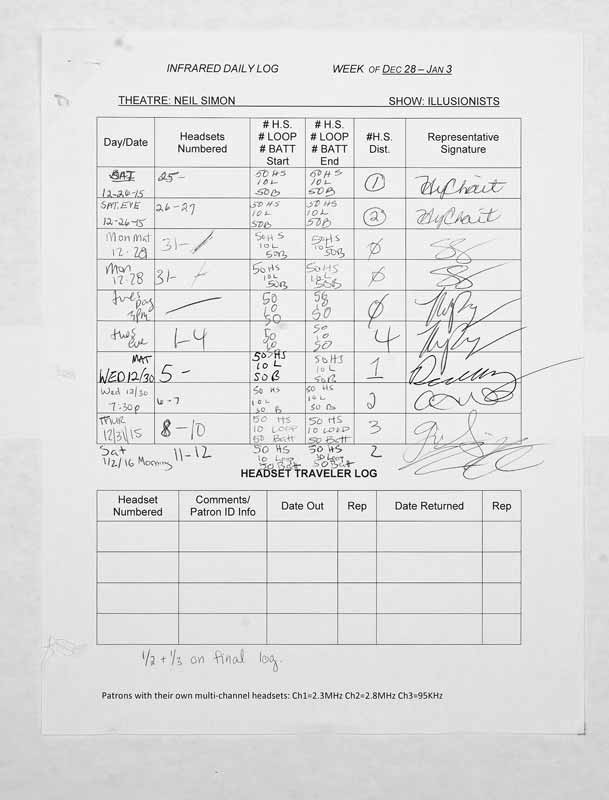 INFRARED DAILY LOG WEEK OF DEC 28 – JAN 3
THEATRE: NEIL SIMON SHOW: ILLUSIONISTS
Day/Date Headsets Numbered # H.S. # LOOP # BATT Start # H.S. # LOOP # BATT End #H.S. Dist. Representative Signature
SAT 12-26-15 25- 50 HS 10 L 50B 50 HS 10 L 50B 1
SAT, EVE 12-26-15 26-27 50 HS 10 L 50B 50 HS 10 L 50B 2
Mon Mat 12-28 31- 50HS 10L 50B 50HS 10L 50B Ø
Mon 12-28 31- 50HS 10L 50B 50HS 10L 50B Ø
Tues Day 3PM 50 10 50 50 10 50 Ø
tues eve 1-4 50 10 50 50 10 50 4
MAT WED 12/30 5- 50 HS 10 L 50 B 50HS 10 L 50B 1
Wed 12/30 7:30p 6-7 50 HS 10L 50 B 50 HS 10L 50 B 2
12/31/15 8-10 50 HS 10 LOOP 50 Batt 50 HS 10 LOOP 50 Batt 3
Sat 1/2/16 Morning 11-12 50 HS 10 Loop 50 Batt 50 HS 10 Loop 50 Batt 2
HEADSET TRAVELER LOG
Headset Numbered Comments/ Patron ID Info Date Out Rep Date Returned Rep
1/2 + 1/3 on final log.
Patrons with their own multi-channel headsets: Ch1=2.3MHz Ch2=2.8MHz Ch3=95KHz